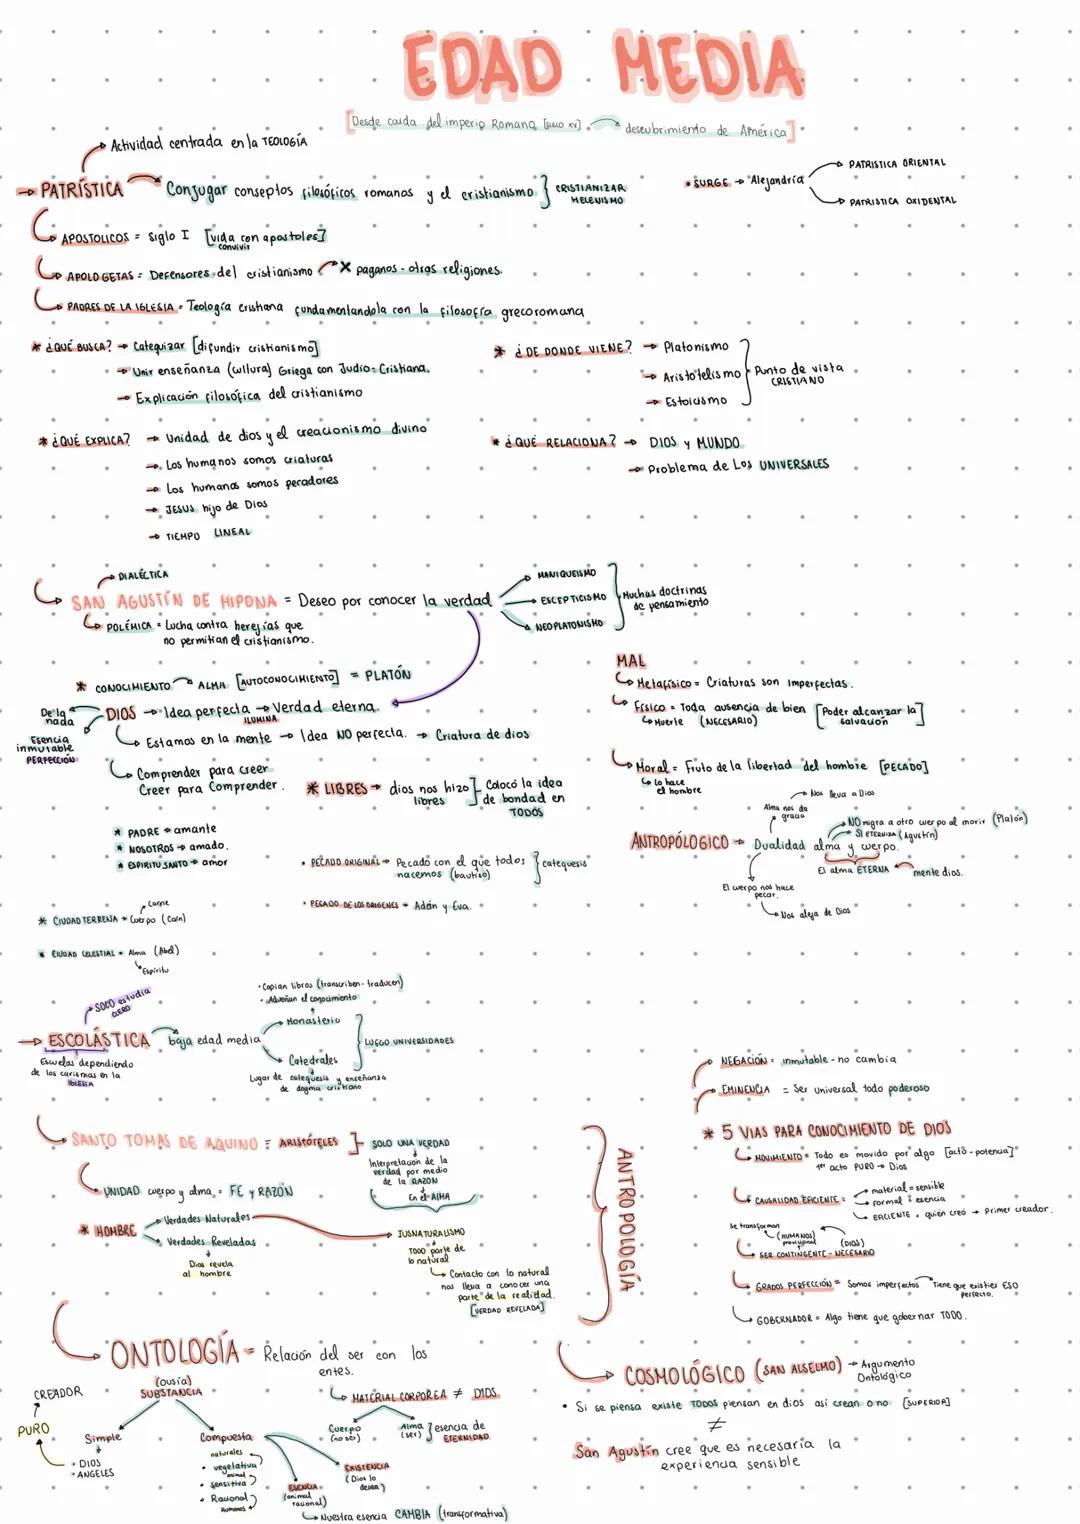 EDAD MEDIA
[Desde caida del imperio Romano [siglo XV] descubrimiento de América]
Actividad centrada en la TEOLOGÍA
PATRÍSTICA Conjugar conseptos filosóficos romanos y el cristianismo } CRISTIANIZAR HELENISMO
• SURGE → Alejandría
PATRISTICA ORIENTAL
PATRISTICA OXIDENTAL
APOSTOLICOS = Siglo I [vida con apostoles]
convivir
APOLOGETAS = Defensores del cristianismo X paganos - otras religiones.
PADRES DE LA IGLESIA = Teología cristiana fundamentandola con la filosofía grecoromana
* ¿QUÉ BUSCA? → Catequizar [difundir cristianismo]
→ Unir enseñanza (cultura) Griega con Judio-Cristiana.
→ Explicación filosófica del cristianismo
* ¿DE DONDE VIENE? → Platonismo
→ Aristotelismo
→ Estoicismo
Punto de vista
CRISTIANO
* ¿QUÉ EXPLICA? → Unidad de dios y el creacionismo divino
→ Los humanos somos criaturas
→ Los humanos somos pecadores
→ JESUS hijo de Dios
→ TIEMPO LINEAL
* ¿QUÉ RELACIONA? → DIOS y MUNDO
→ Problema de Los UNIVERSALES
DIALÉCTICA
SAN AGUSTÍN DE HIPONA = Deseo por conocer la verdad
MANIQUEISMO
ESCEPTICISMO
NEOPLATONISMO
Muchas doctrinas
de pensamiento
POLÉMICA = Lucha contra herejías que
no permitían el cristianismo.
* CONOCIMIENTO ALMA [AUTOCONOCIMIENTO] = PLATÓN
De la
nada
DIOS → Idea perfecta → Verdad eterna.
ILUMINA
Esencia
inmutable
PERFECCIÓN
Estamos en la mente → Idea NO perfecta. → Criatura de dios
Comprender para creer
Creer para Comprender.
* LIBRES → dios nos hizo
libres
Colocó la idea
de bondad en
TODOS
* PADRE → amante
* NOSOTROS → amado.
* ESPIRITU SANTO → amor
• PECADO ORIGINAL → Pecado con el que todos
nacemos (bautiso)
} catequesis
• PECADO DE LOS ORIGENES → Adán y Eva.
Carne
* CIUDAD TERRENA → Cuerpo (Caín)
* CIUDAD CELESTIAL → Alma (Abel)
Espíritu
MAL
Metafísico = Criaturas son Imperfectas.
Físico = Toda ausencia de bien [Poder alcanzar la
salvación]
Muerte (NECESARIO)
Moral = Fruto de la libertad del hombre [PECADO]
Lo hace
el hombre
Nos lleva a Dios
Alma nos da
gracia
NO migra a otro cuerpo al morir (Platón)
SI ETERNIDA (Agustín)
ANTROPÓLOGICO → Dualidad alma y cuerpo.
El alma ETERNA mente dios.
El cuerpo nos hace
pecar.
Nos aleja de Dios
SOLO estudia
CLERO
• Copian libros (transcriben - traducen)
• Adueñan el conocimiento
→ ESCOLÁSTICA baja edad media
Monasterio
Catedrales
LUEGO UNIVERSIDADES
Escuelas dependiendo
de los carismas en la
IGLESIA
Lugar de catequesis y enseñanza
de dogma cristiano
SANTO TOMAS DE AQUINO = ARISTÓTELES
SOLO UNA VERDAD
Interpretación de la
verdad por medio
de la RAZON
En el ALMA
UNIDAD cuerpo y alma = FE y RAZÓN
* HOMBRE
Verdades Naturales
Verdades Reveladas
Dios revela
al hombre
IUSNATURALISMO
TODO parte de
lo natural
Contacto con lo natural
nos lleva a conocer una
parte de la realidad.
[VERDAD REVELADA]
ANTROPOLOGÍA
NEGACIÓN = inmutable - no cambia
EMINENCIA = Ser universal todo poderoso
* 5 VIAS PARA CONOCIMIENTO DE DIOS
MOVIMIENTO = Todo es movido por algo [acto - potencia]
1er acto PURO → Dios
CAUSALIDAD EFICIENTE =
material = sensible
formal = esencia
EFICIENTE = quién creó → primer creador.
se transforman
(HUMANOS)
(DIOS)
SER CONTINGENTE - NECESARIO
GRADOS PERFECCIÓN = Somos imperfectos Tiene que existier ESO
perfecto.
GOBERNADOR = Algo tiene que gobernar TODO.
ONTOLOGÍA = Relación del ser con los
entes.
CREADOR
PURO
(ousía)
SUBSTANCIA
Simple
• DIOS
• ANGELES
Compuesta
naturales
• vegetativa
animal
• sensitiva
• Racional
Humanos
MATERIAL CORPOREA ≠ DIOS
Cuerpo
(no ser)
Alma
(ser)
} esencia de
ETERNIDAD
ESENCIA
(animal
racional)
EXISTENCIA
(Dios lo
desea)
Nuestra esencia CAMBIA (transformativa)
COSMOLÓGICO (SAN ALSELMO) → Argumento
Ontológico
• Si se piensa existe TODOS piensan en dios así crean o no [SUPERIOR]
≠
San Agustín cree que es necesaria la
experiencia sensible